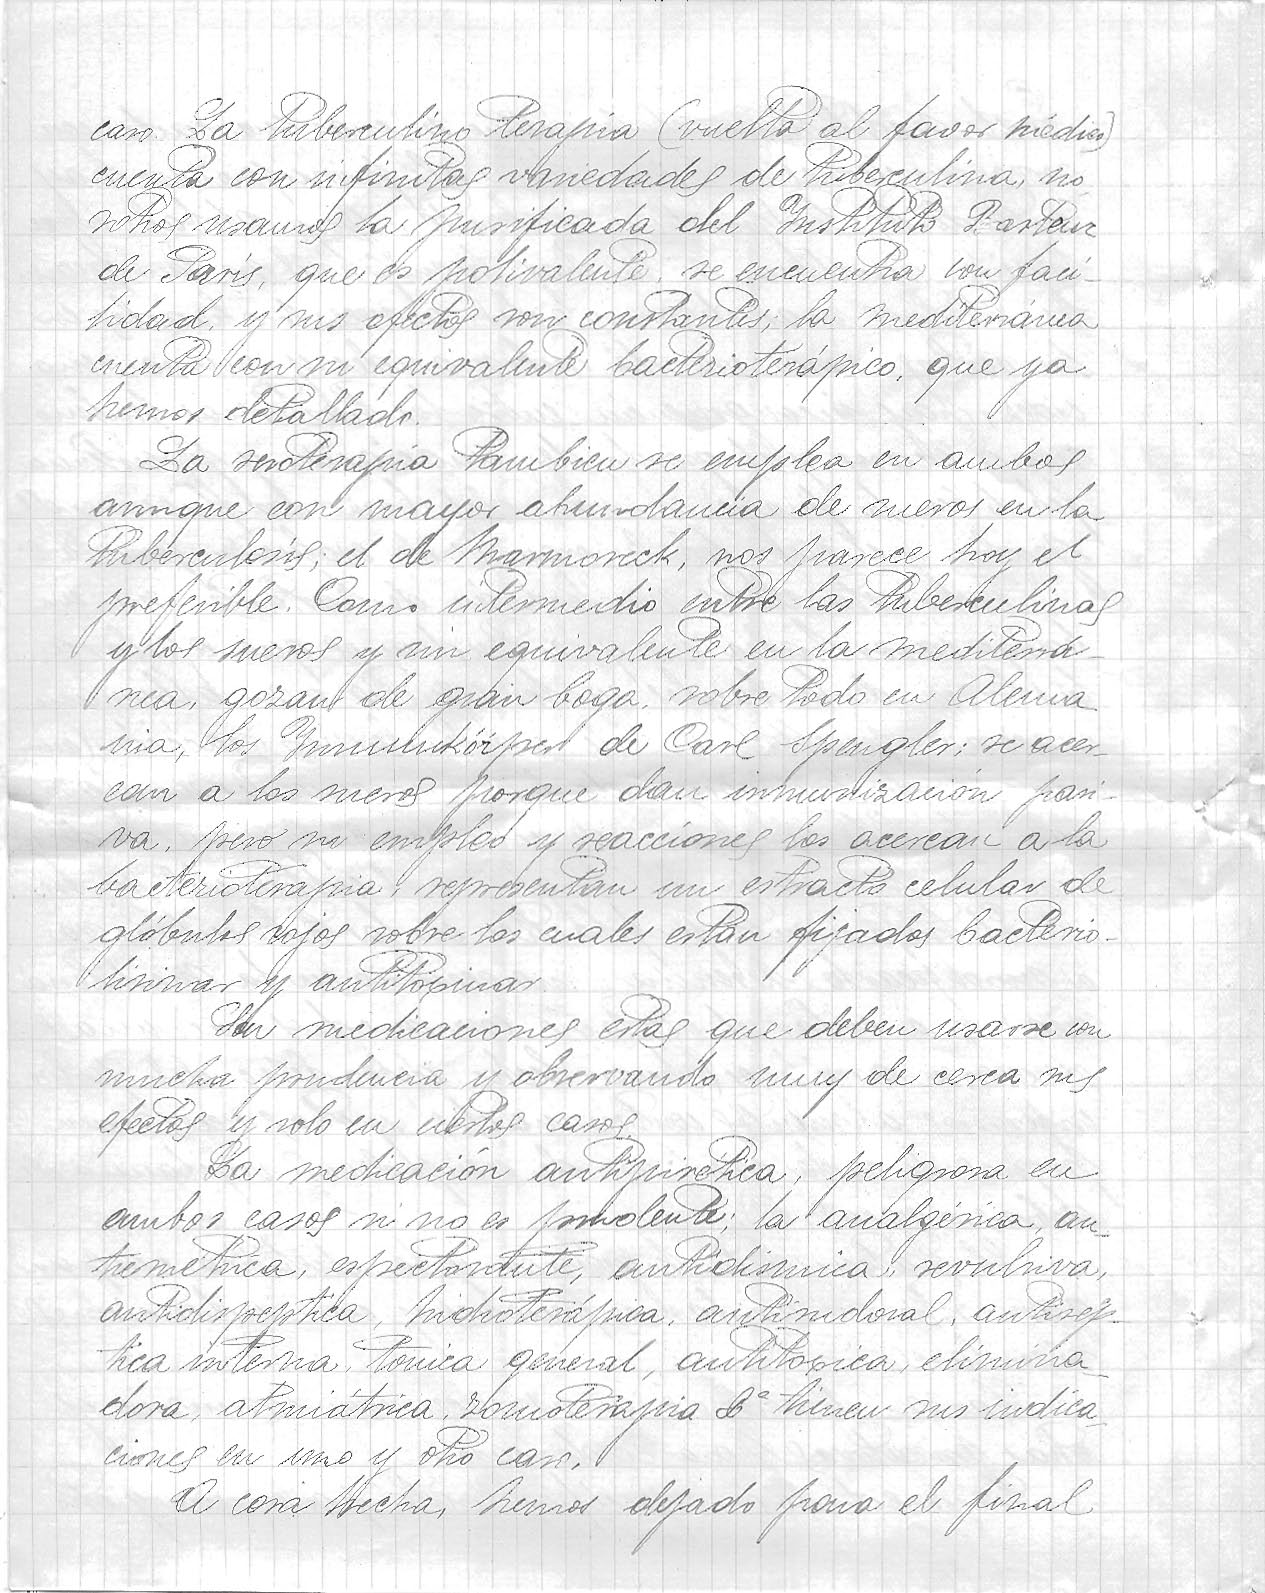 caso. La tuberculino terapia (vuelta al favor médico)
cuenta con infinitas variedades de tuberculina, no
sotros usamos la purificada del Instituto Pasteur
de París, que es polivalente, se encuentra con faci-
lidad, y sus efectos son constantes; la mediterránea
cuenta con su equivalente bacterioterápico, que ya
hemos detallado.
La seroterapia tambien se emplea en ambos
aunque con mayor abundancia de sueros en la
tuberculosis; el de Marmoreck, nos parece hoy el
preferible. Como intermedio entre las tuberculinas
y los sueros y sin equivalente en la mediterrá-
nea, gozan de gran boga, sobre todo en Alema
nia, los Immunkörper de Carl Spengler: se acer-
can a los sueros porque dan inmunización pasi-
va, pero su empleo y reacciones los acercan a la
bacterioterapia; representan un estracto celular de
glóbulos rojos sobre los cuales están fijados bacterio-
lisinas y antitoxinas
Son medicaciones estas que deben usarse con
mucha prudencia y observando muy de cerca sus
efectos y solo en ciertos casos.
La medicación antipirética, peligrosa en
ambos casos si no es prudente; la analgésica, an-
tiemética, espectorante, antidísmica, revulsiva,
antidispeptica, hidroterápica, antisudoral, antisép-
tica interna, tonica general, antitoxica, elimina-
dora, atmiátrica, zomoterapia &ª tienen sus indica-
ciones en uno y otro caso.
A cosa hecha, hemos dejado para el final